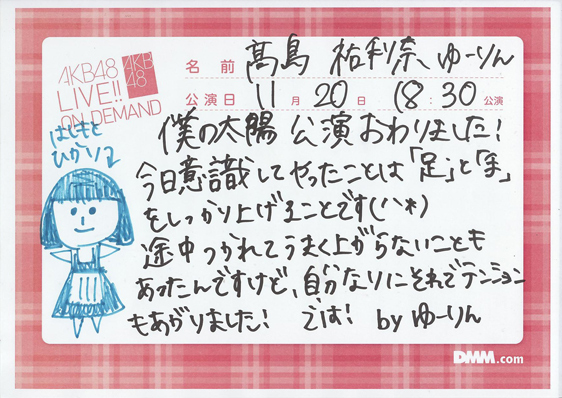 AKB48
LIVE!!
ON DEMAND
AKB
48
名前 髙島 祐利奈 ゆーりん
公演日 11月20日 18:30公演
はしもと
ひかり
僕の太陽 公演おわりました!
今日意識してやったことは「足」と「手」
をしっかり上げることです(^^*)
途中つかれてうまく上がらないことも
あったんですけど、自分なりにそれでテンション
もあがりました! では! by ゆーりん
DMM.com